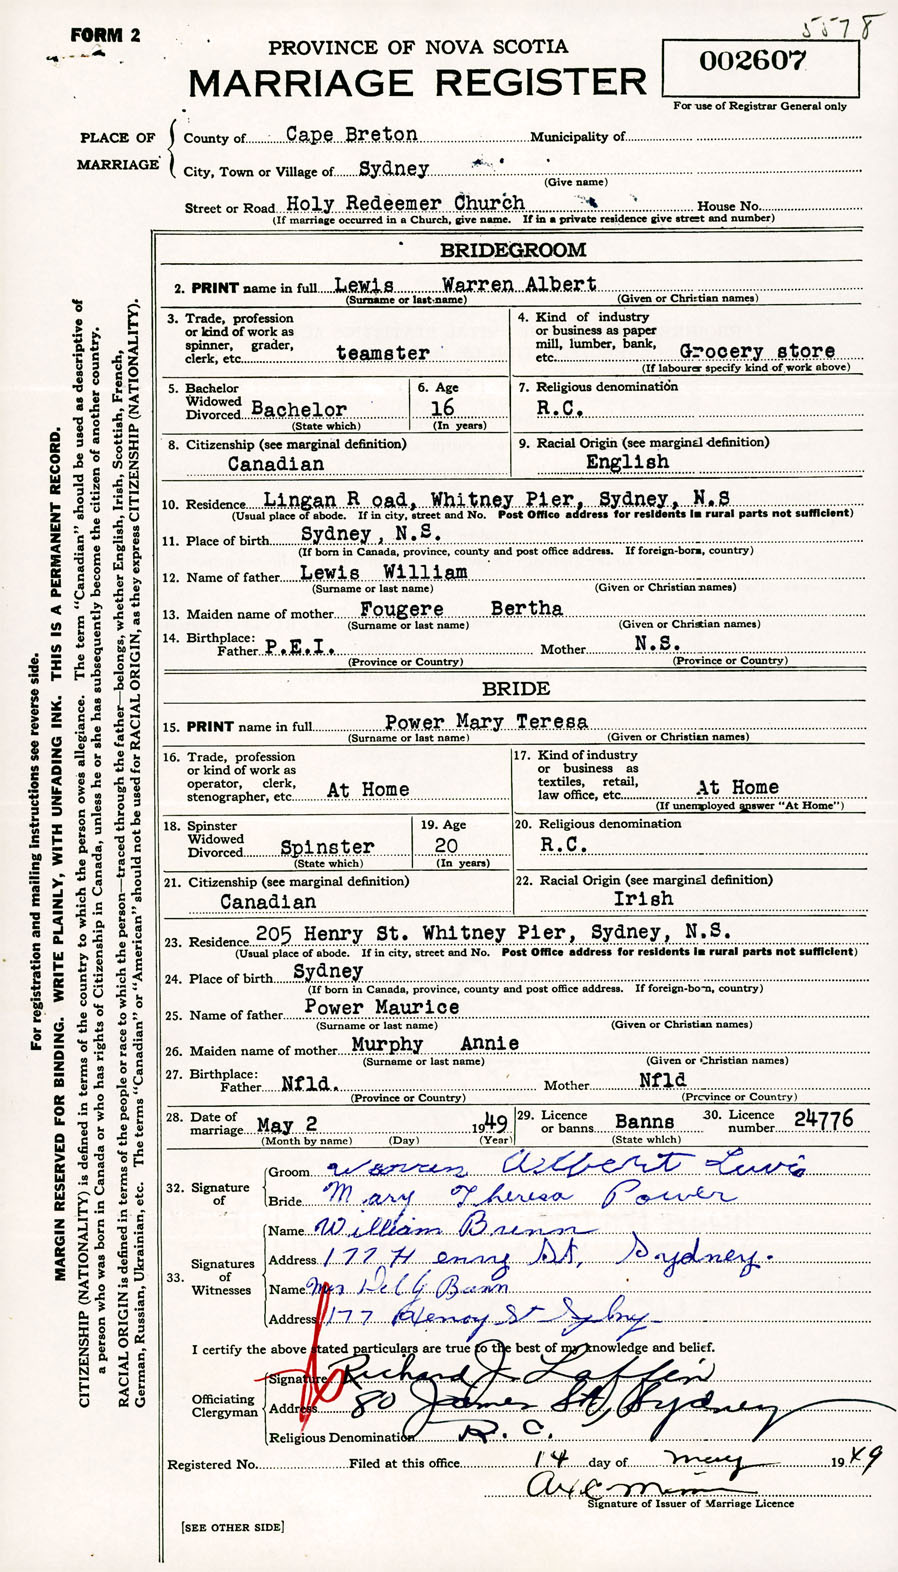 FORM 2
5578
PROVINCE OF NOVA SCOTIA
MARRIAGE REGISTER
002607
For use of Registrar General only
PLACE OF MARRIAGE
County of Cape Breton Municipality of
City, Town or Village of Sydney
(Give name)
Street or Road Holy Redeemer Church House No.
(If marriage occurred in a Church, give name. If in a private residence give street and number)
BRIDEGROOM
2. PRINT name in full Lewis Warren Albert
(Surname or last name) (Given or Christian names)
3. Trade, profession or kind of work as spinner, grader, clerk, etc. teamster
4. Kind of industry or business as paper mill, lumber, bank, etc. Grocery store
(If labourer specify kind of work above)
5. Bachelor Widowed Divorced Bachelor
(State which)
6. Age 16
(In years)
7. Religious denomination
R.C.
8. Citizenship (see marginal definition)
Canadian
9. Racial Origin (see marginal definition)
English
10. Residence Lingan R oad, Whitney Pier, Sydney, N.S
(Usual place of abode. If in city, street and No. Post Office address for residents in rural parts not sufficient)
11. Place of birth Sydney, N.S.
(If born in Canada, province, county and post office address. If foreign-born, country)
12. Name of father Lewis William
(Surname or last name) (Given or Christian names)
13. Maiden name of mother Fougere Bertha
(Surname or last name) (Given or Christian names)
14. Birthplace: Father P.E.I. Mother N.S.
(Province or Country) (Province or Country)
BRIDE
15. PRINT name in full Power Mary Teresa
(Surname or last name) (Given or Christian names)
16. Trade, profession or kind of work as operator, clerk, stenographer, etc. At Home
17. Kind of industry or business as textiles, retail, law office, etc. At Home
(If unemployed answer "At Home")
18. Spinster Widowed Divorced Spinster
(State which)
19. Age 20
(In years)
20. Religious denomination
R.C.
21. Citizenship (see marginal definition)
Canadian
22. Racial Origin (see marginal definition)
Irish
23. Residence 205 Henry St. Whitney Pier, Sydney, N.S.
(Usual place of abode. If in city, street and No. Post Office address for residents in rural parts not sufficient)
24. Place of birth Sydney
(If born in Canada, province, county and post office address. If foreign-born, country)
25. Name of father Power Maurice
(Surname or last name) (Given or Christian names)
26. Maiden name of mother Murphy Annie
(Surname or last name) (Given or Christian names)
27. Birthplace: Father Nfld. Mother Nfld
(Province or Country) (Province or Country)
28. Date of marriage May 2 1949
(Month by name) (Day) (Year)
29. Licence or banns Banns
(State which)
30. Licence number 24776
32. Signature of
Groom Warren Albert Lewis
Bride Mary Theresa Power
33. Signatures of Witnesses
Name William Brenn
Address 177 Henry St, Sydney.
Name Mrs
Address 177 Henry St Sydney
I certify the above stated particulars are true to the best of my knowledge and belief.
Officiating Clergyman
Signature Richard J. Laffin
Address 80 James St, Sydney
Religious Denomination R.C.
Registered No. Filed at this office 14 day of May 1949
Signature of Issuer of Marriage Licence
[SEE OTHER SIDE]
For registration and mailing instructions see reverse side.
MARGIN RESERVED FOR BINDING. WRITE PLAINLY, WITH UNFADING INK. THIS IS A PERMANENT RECORD.
CITIZENSHIP (NATIONALITY) is defined in terms of the country to which the person owes allegiance. The term "Canadian" should be used as descriptive of
a person who was born in Canada or who has rights of Citizenship in Canada, unless he or she has subsequently become the citizen of another country.
RACIAL ORIGIN is defined in terms of the people or race to which the person—traced through the father—belongs, whether English, Irish, Scottish, French,
German, Russian, Ukrainian, etc. The terms "Canadian" or "American" should not be used for RACIAL ORIGIN, as they express CITIZENSHIP (NATIONALITY).